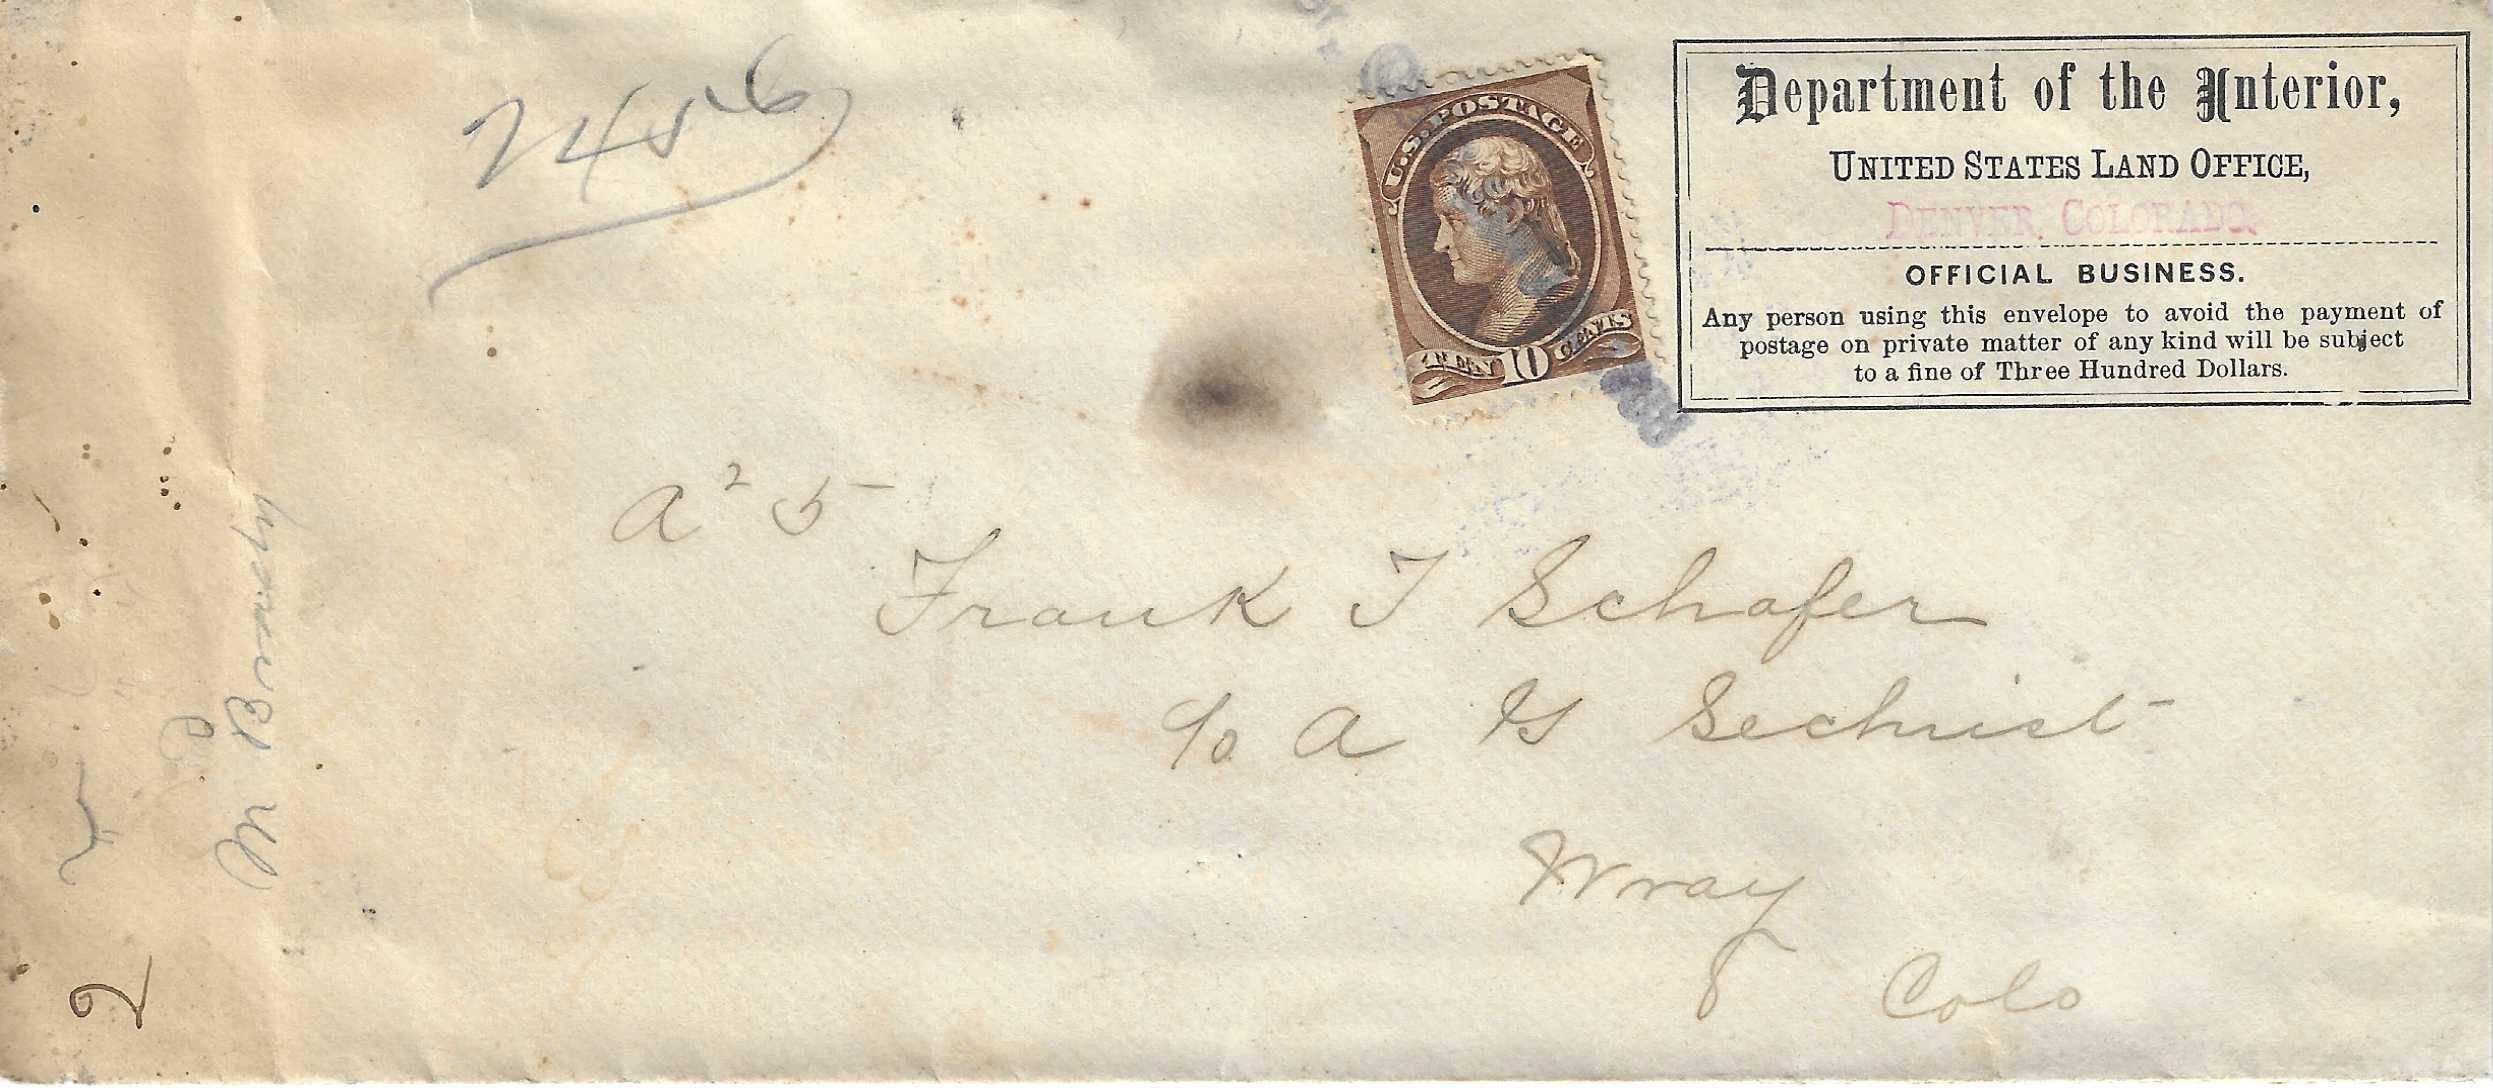 Department of the Interior,
UNITED STATES LAND OFFICE,
DENVER, COLORADO.
OFFICIAL BUSINESS.
Any person using this envelope to avoid the payment of
postage on private matter of any kind will be subject
to a fine of Three Hundred Dollars.
U.S. POSTAGE
10
2456
a² 5
Frank T Schafer
c/o A G Sechrist
Wray
Colo
2